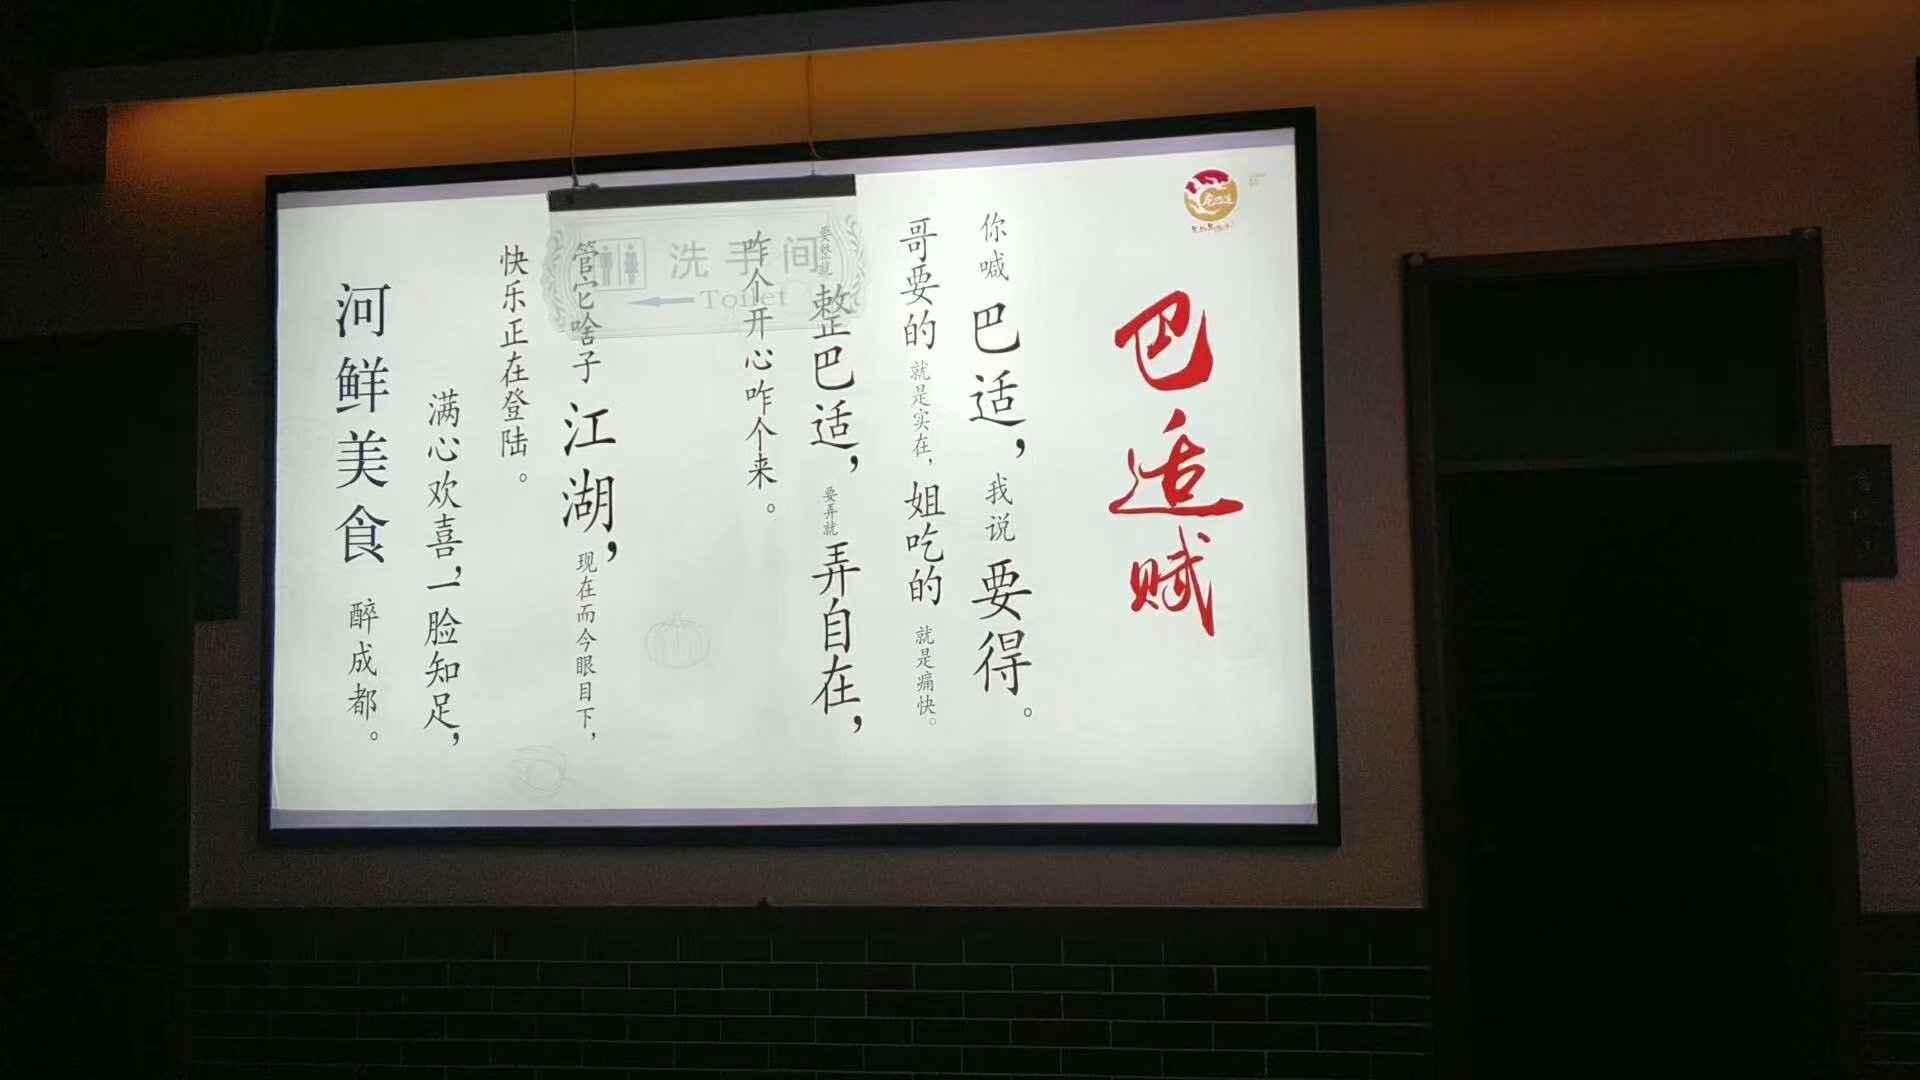 巴适赋
你喊巴适，我说要得。
哥要的就是实在，姐吃的就是痛快。
要整就整巴适，要弄就弄自在，
咋个开心咋个来。
管它啥子江湖，现在而今眼目下，
快乐正在登陆。
满心欢喜，一脸知足，
河鲜美食醉成都。
洗手间
Toilet